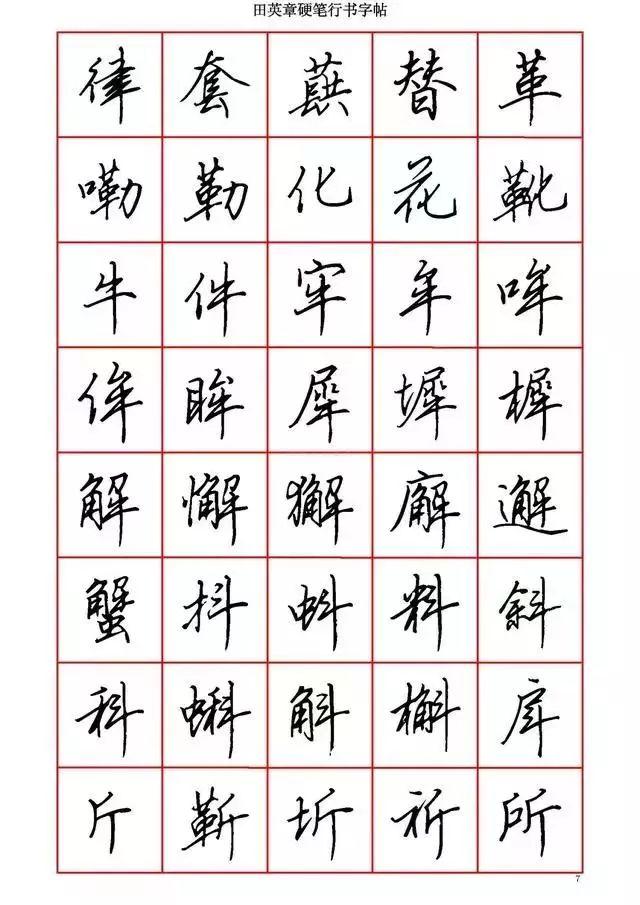 田英章硬笔行书字帖
律 套 蕻 替 革
嘞 勒 化 花 靴
牛 件 牢 牟 哞
侔 眸 犀 墀 樨
解 懈 獬 廨 邂
蟹 抖 蚪 料 斜
科 蝌 斛 槲 戽
斤 靳 圻 祈 所
7